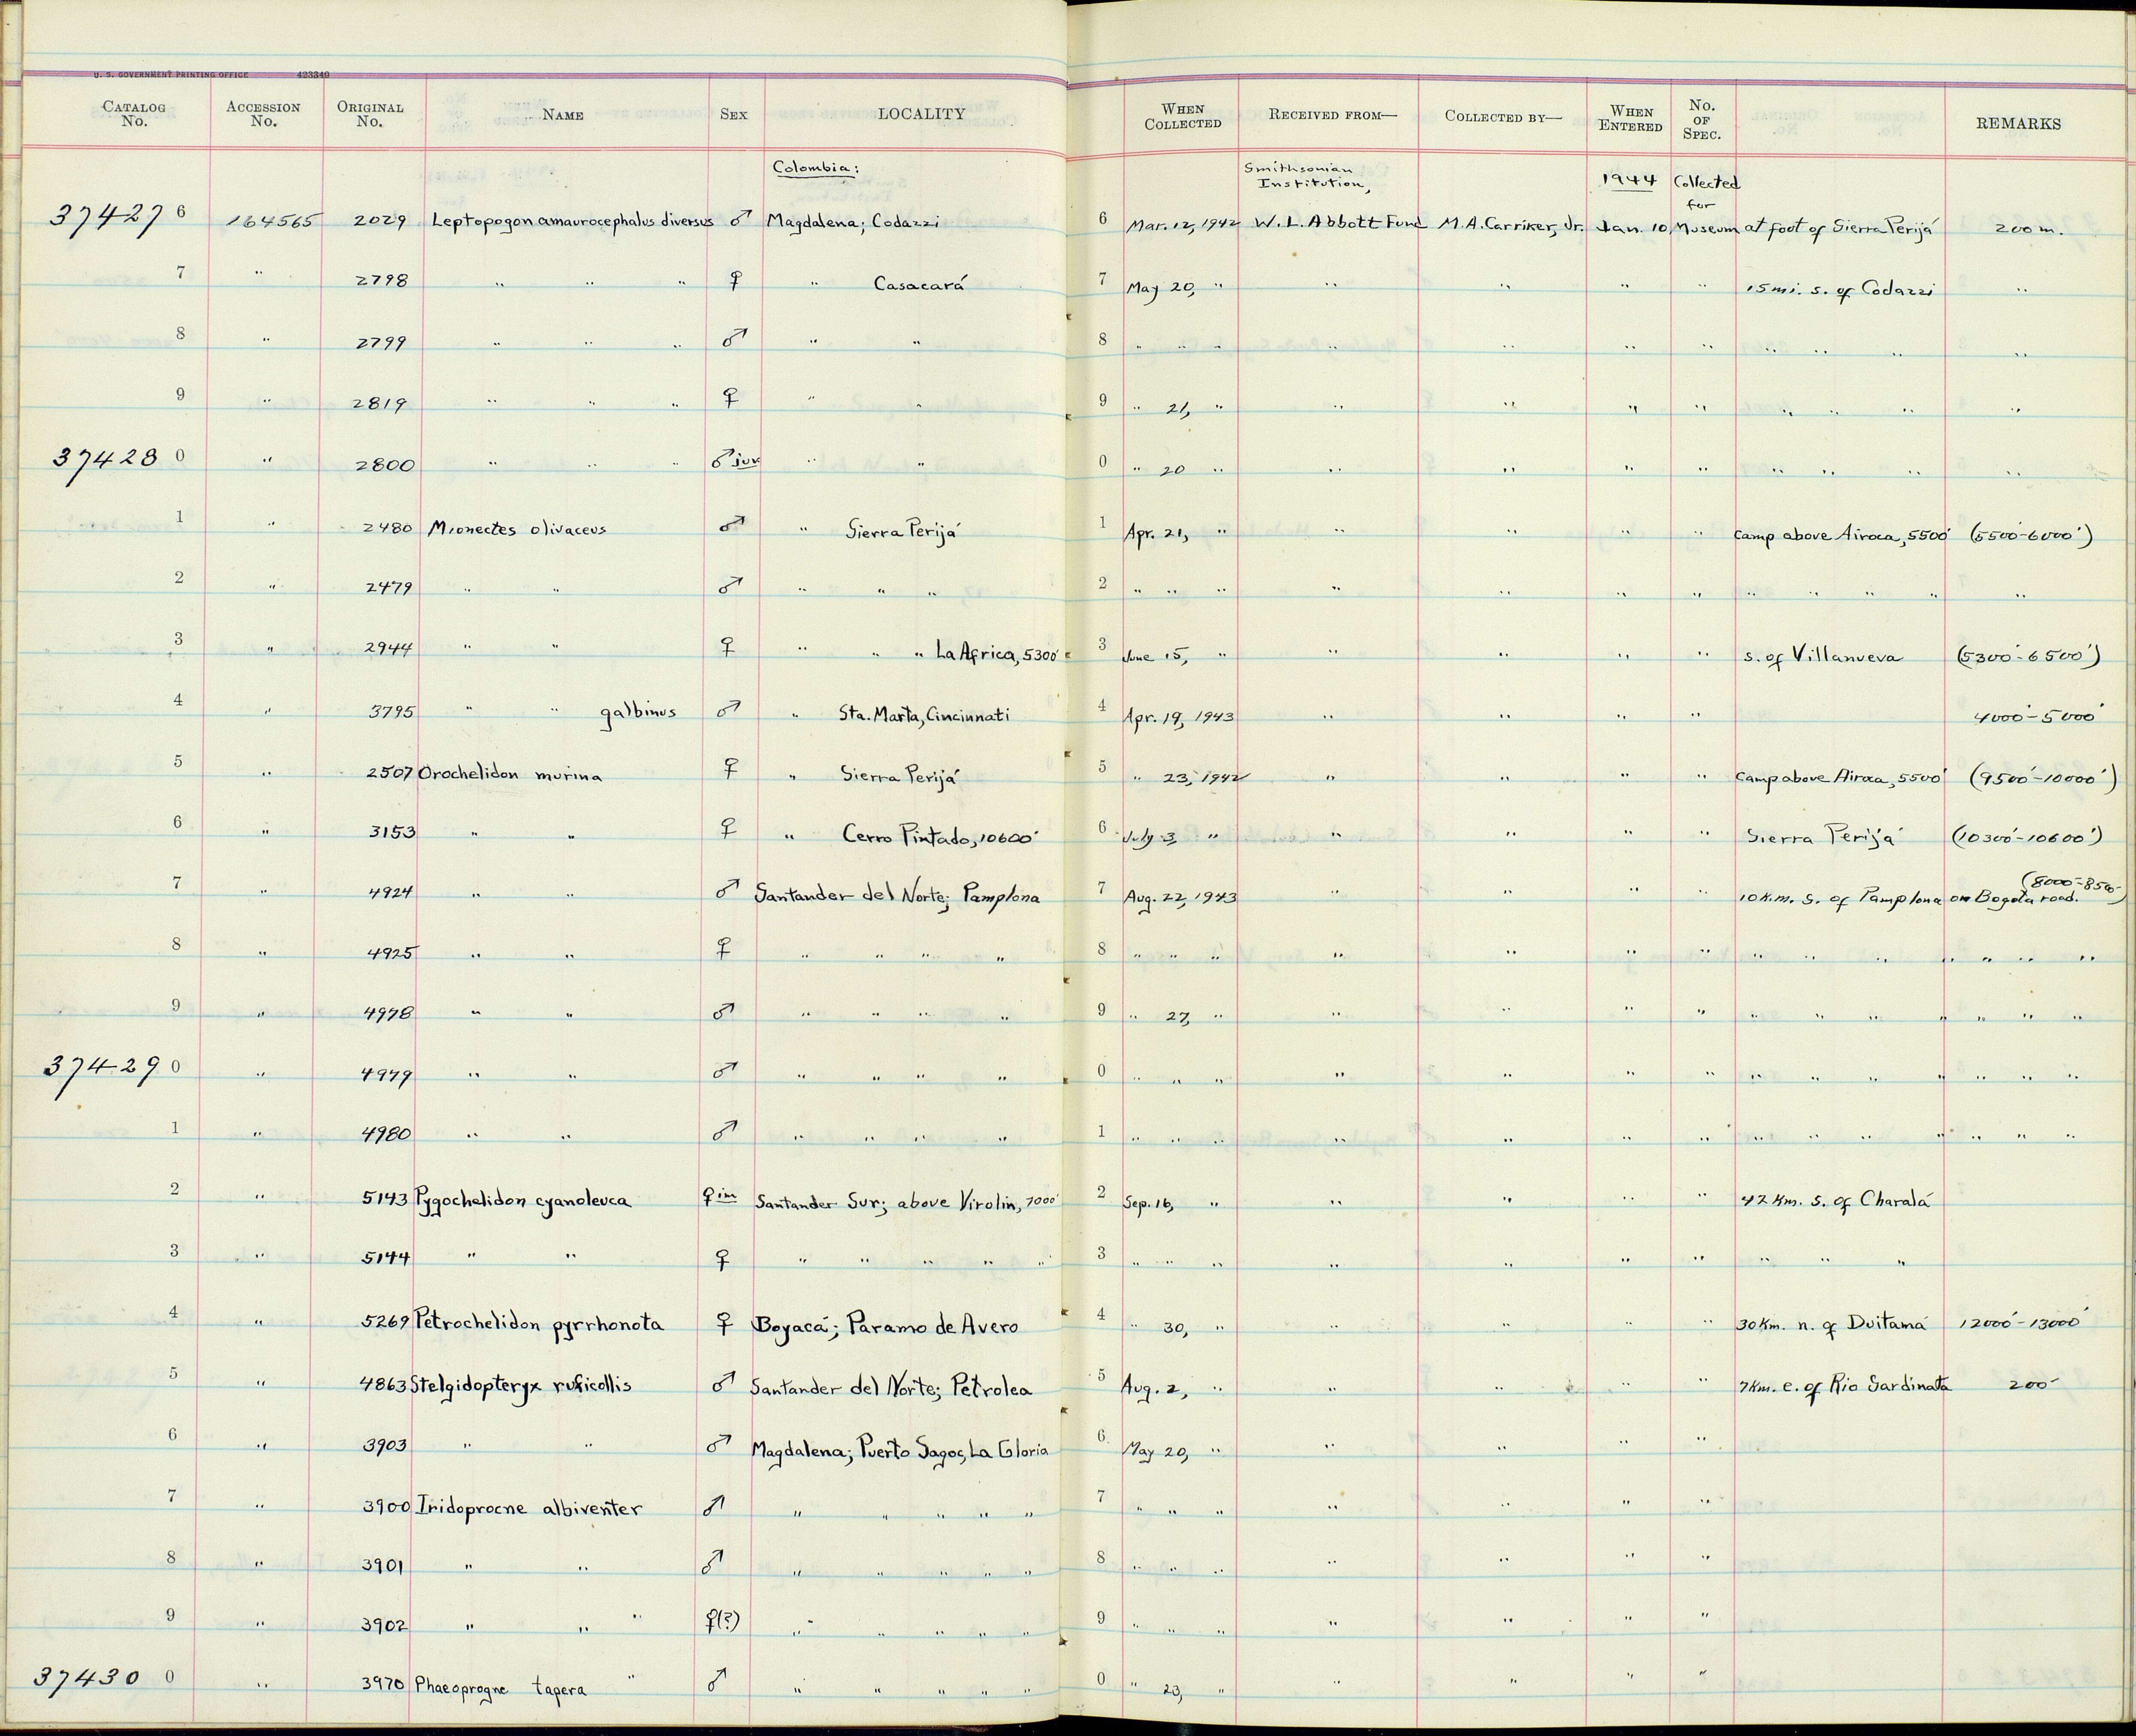 U. S. GOVERNMENT PRINTING OFFICE 423349
CATALOG No. ACCESSION No. ORIGINAL No. NAME SEX LOCALITY WHEN COLLECTED RECEIVED FROM— COLLECTED BY— WHEN ENTERED No. OF SPEC. REMARKS
Colombia: Smithsonian Institution, 1944 Collected for
37427 6 164565 2029 Leptopogon amaurocephalus diversus ♂ Magdalena; Codazzi 6 Mar. 12, 1942 W. L. Abbott Fund M. A. Carriker, Jr. Jan. 10 Museum at foot of Sierra Perijá 200 m.
7 " 2798 " " " ♀ " Casacará 7 May 20, " " " " " 15 mi. s. of Codazzi "
8 " 2799 " " " ♂ " " 8 " " " " " " " " " " "
9 " 2819 " " " ♀ " " 9 " 21, " " " " " " " " "
37428 0 " 2800 " " " ♂ juv " " 0 " 20 " " " " " " " " "
1 " 2480 Mionectes olivaceus ♂ " Sierra Perijá 1 Apr. 21, " " " " " Camp above Airoca, 5500' (5500'-6000')
2 " 2479 " " ♂ " " " 2 " " " " " " " " " " " "
3 " 2944 " " ♀ " " " La Africa, 5300' 3 June 15, " " " " " s. of Villanueva (5300'-6500')
4 " 3795 " " galbinus ♂ " Sta. Marta, Cincinnati 4 Apr. 19, 1943 " " " " 4000'-5000'
5 " 2507 Orochelidon murina ♀ " Sierra Perijá 5 " 23, 1942 " " " " Camp above Airoca, 5500' (9500'-10000')
6 " 3153 " " ♀ " Cerro Pintado, 10600' 6 July 3, " " " " " Sierra Perijá (10300'-10600')
7 " 4924 " " ♂ Santander del Norte; Pamplona 7 Aug. 22, 1943 " " " " 10 K.m. S. of Pamplona on Bogota road. (8000'-8500')
8 " 4925 " " ♀ " " " " 8 " " " " " " " " " " " " " "
9 " 4978 " " ♂ " " " " 9 " 27, " " " " " " " " " " " "
37429 0 " 4979 " " ♂ " " " " 0 " " " " " " " " " " " " " "
1 " 4980 " " ♂ " " " " 1 " " " " " " " " " " " " " "
2 " 5143 Pygochelidon cyanoleuca ♀ im Santander Sur; above Virolin, 7000' 2 Sep. 16, " " " " " 42 Km. S. of Charalá
3 " 5144 " " ♀ " " " " " 3 " " " " " " " " " "
4 " 5269 Petrochelidon pyrrhonota ♀ Boyacá; Paramo de Avero 4 " 30, " " " " " 30 Km. n. of Duitamá 12000'-13000'
5 " 4863 Stelgidopteryx ruficollis ♂ Santander del Norte; Petrolea 5 Aug. 2, " " " " " 7 Km. e. of Rio Sardinata 200'
6 " 3903 " " ♂ Magdalena; Puerto Sagoc, La Gloria 6 May 20, " " " " "
7 " 3900 Iridoprocne albiventer ♂ " " " " " 7 " " " " " " "
8 " 3901 " " ♂ " " " " " 8 " " " " " " "
9 " 3902 " " " ♀(?) " " " " " 9 " " " " " " "
37430 0 " 3970 Phaeoprogne tapera " ♂ " " " " " 0 " 23, " " " " "